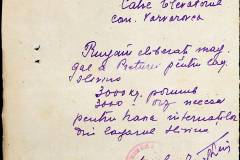 Catre Elevatorul
com. Varvarovca
Rugăm eliberati mag.
gal a Preturei pentru lag.
Slivino
3000 kg. porumb
3000 " orz necesar
pentru hrana internatilor
din lagarul Slivino